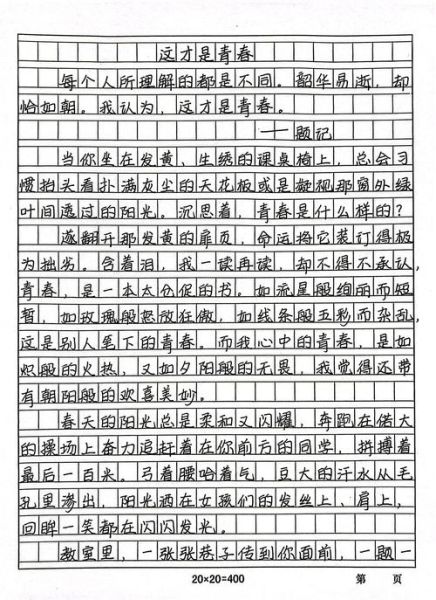 这才是青春
每个人所理解的都是不同。韶华易逝,却
恰如朝。我认为,这才是青春。
——题记
当你坐在发黄、生绣的课桌椅上,总会习
惯抬头看扑满灰尘的天花板或是凝视那窗外绿
叶间透过的阳光。沉思着,青春是什么样的?
逐翻开那发黄的扉页,命运将它装订得极
为拙劣。含着泪,我一读再读,却不得不承认,
青春,是一本太仓促的书。如流星般绚丽而短
暂,如玫瑰般怒放狂傲,如线条般五彩而杂乱,
这是别人笔下的青春。而我心中的青春,是如
炽般的火热,又如夕阳般的无畏,我觉得还带
有朝阳般的欢喜美妙。
春天的阳光总是柔和又闪耀,奔跑在偌大
的操场上奋力追赶着在你前方的同学,拼搏着
最后一百米。弓着腰哈着气,豆大的汗水从毛
孔里渗出,阳光洒在女孩们的发丝上、肩上,
回眸一笑都在闪闪发光。
教室里,一张张卷子传到你面前,一题一
20×20=400 第 页